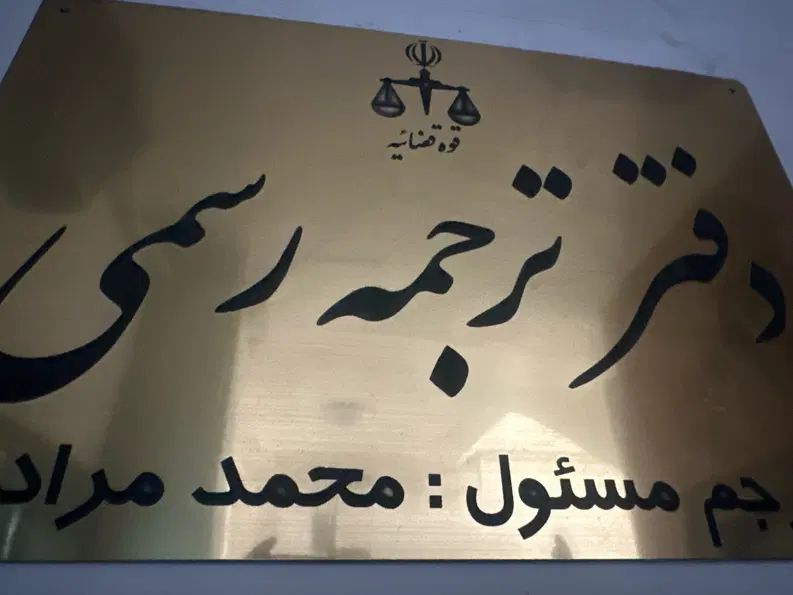 قوه قضائیه
دفتر ترجمه رسمی
مسئول : محمد